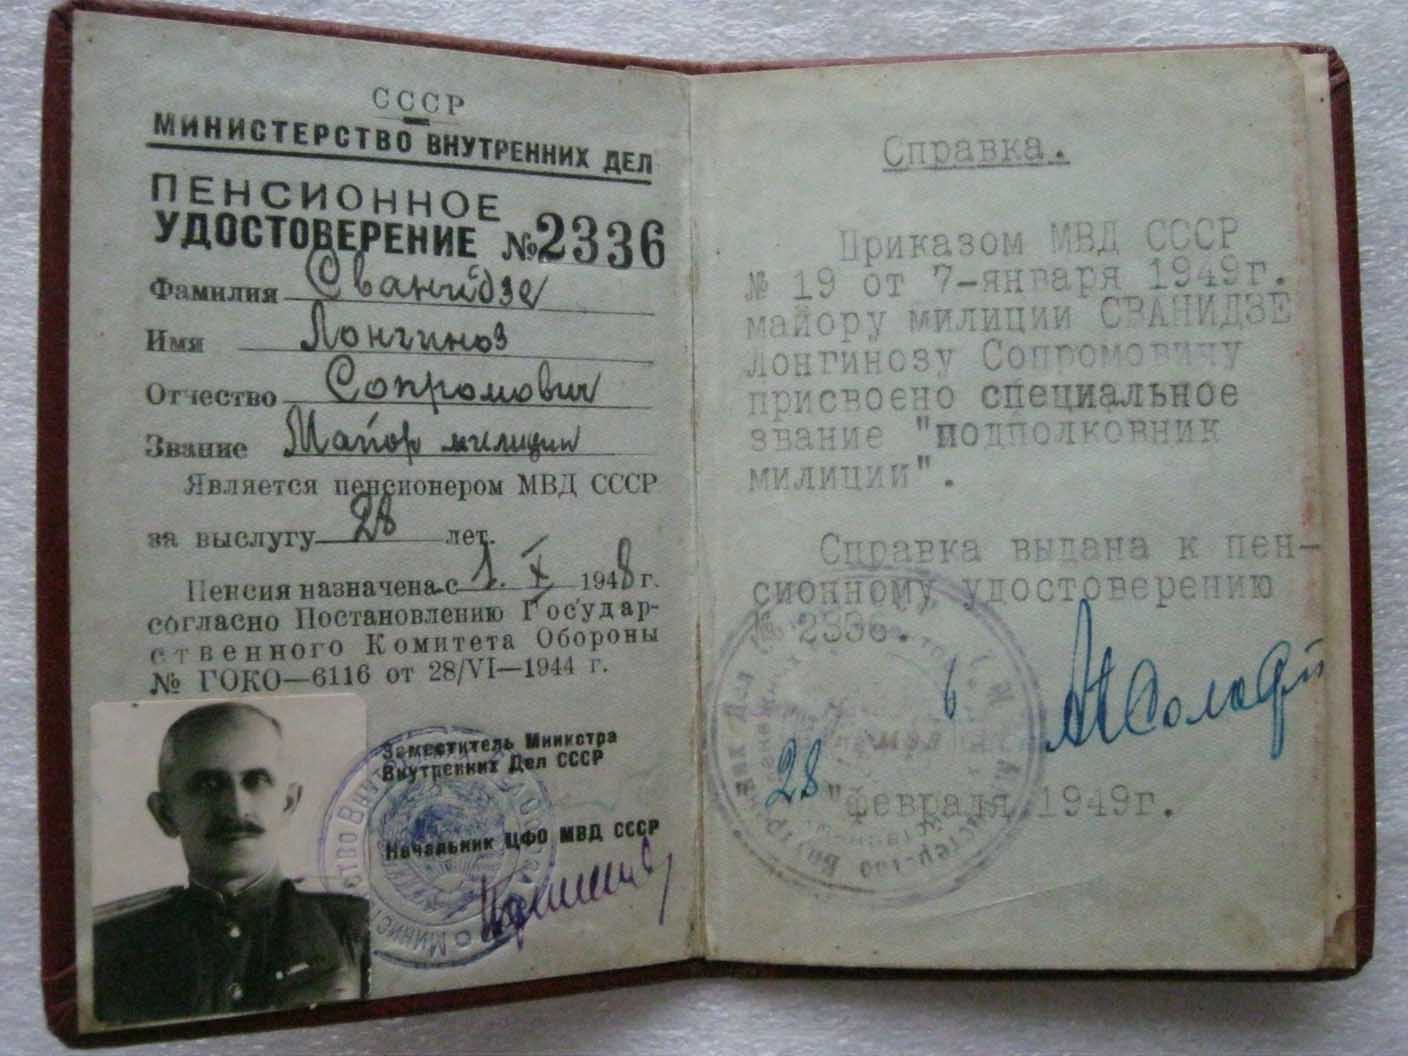 СССР
МИНИСТЕРСТВО ВНУТРЕННИХ ДЕЛ
ПЕНСИОННОЕ
УДОСТОВЕРЕНИЕ №2336
Фамилия Сванидзе
Имя Лонгиноз
Отчество Сопромович
Звание Майор милиции
Является пенсионером МВД СССР
за выслугу 28 лет.
Пенсия назначена с 1. X 1948 г.
согласно Постановлению Государ-
ственного Комитета Обороны
№ ГОКО—6116 от 28/VI—1944 г.
Заместитель Министра
Внутренних Дел СССР
Начальник ЦФО МВД СССР
Справка.
Приказом МВД СССР
№ 19 от 7-января 1949г.
майору милиции СВАНИДЗЕ
Лонгинозу Сопромовичу
присвоено специальное
звание "подполковник
милиции".
Справка выдана к пен-
сионному удостоверению
№ 2336.
28 "февраля 1949г.